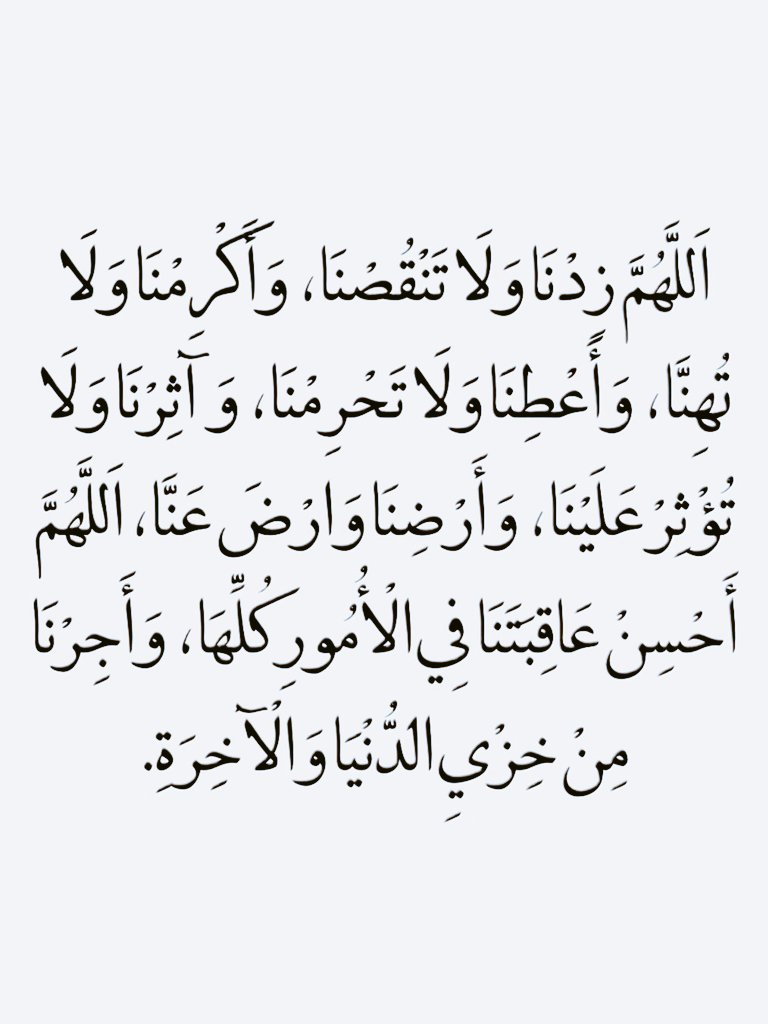 اَللَّهُمَّ زِدْنَا وَلَا تَنْقُصْنَا، وَأَكْرِمْنَا وَلَا
تُهِنَّا، وَأَعْطِنَا وَلَا تَحْرِمْنَا، وَ آثِرْنَا وَلَا
تُؤْثِرْ عَلَيْنَا، وَأَرْضِنَا وَارْضَ عَنَّا، اَللَّهُمَّ
أَحْسِنْ عَاقِبَتَنَا فِي الْأُمُورِ كُلِّهَا، وَأَجِرْنَا
مِنْ خِزْيِ الدُّنْيَا وَالْآخِرَةِ.